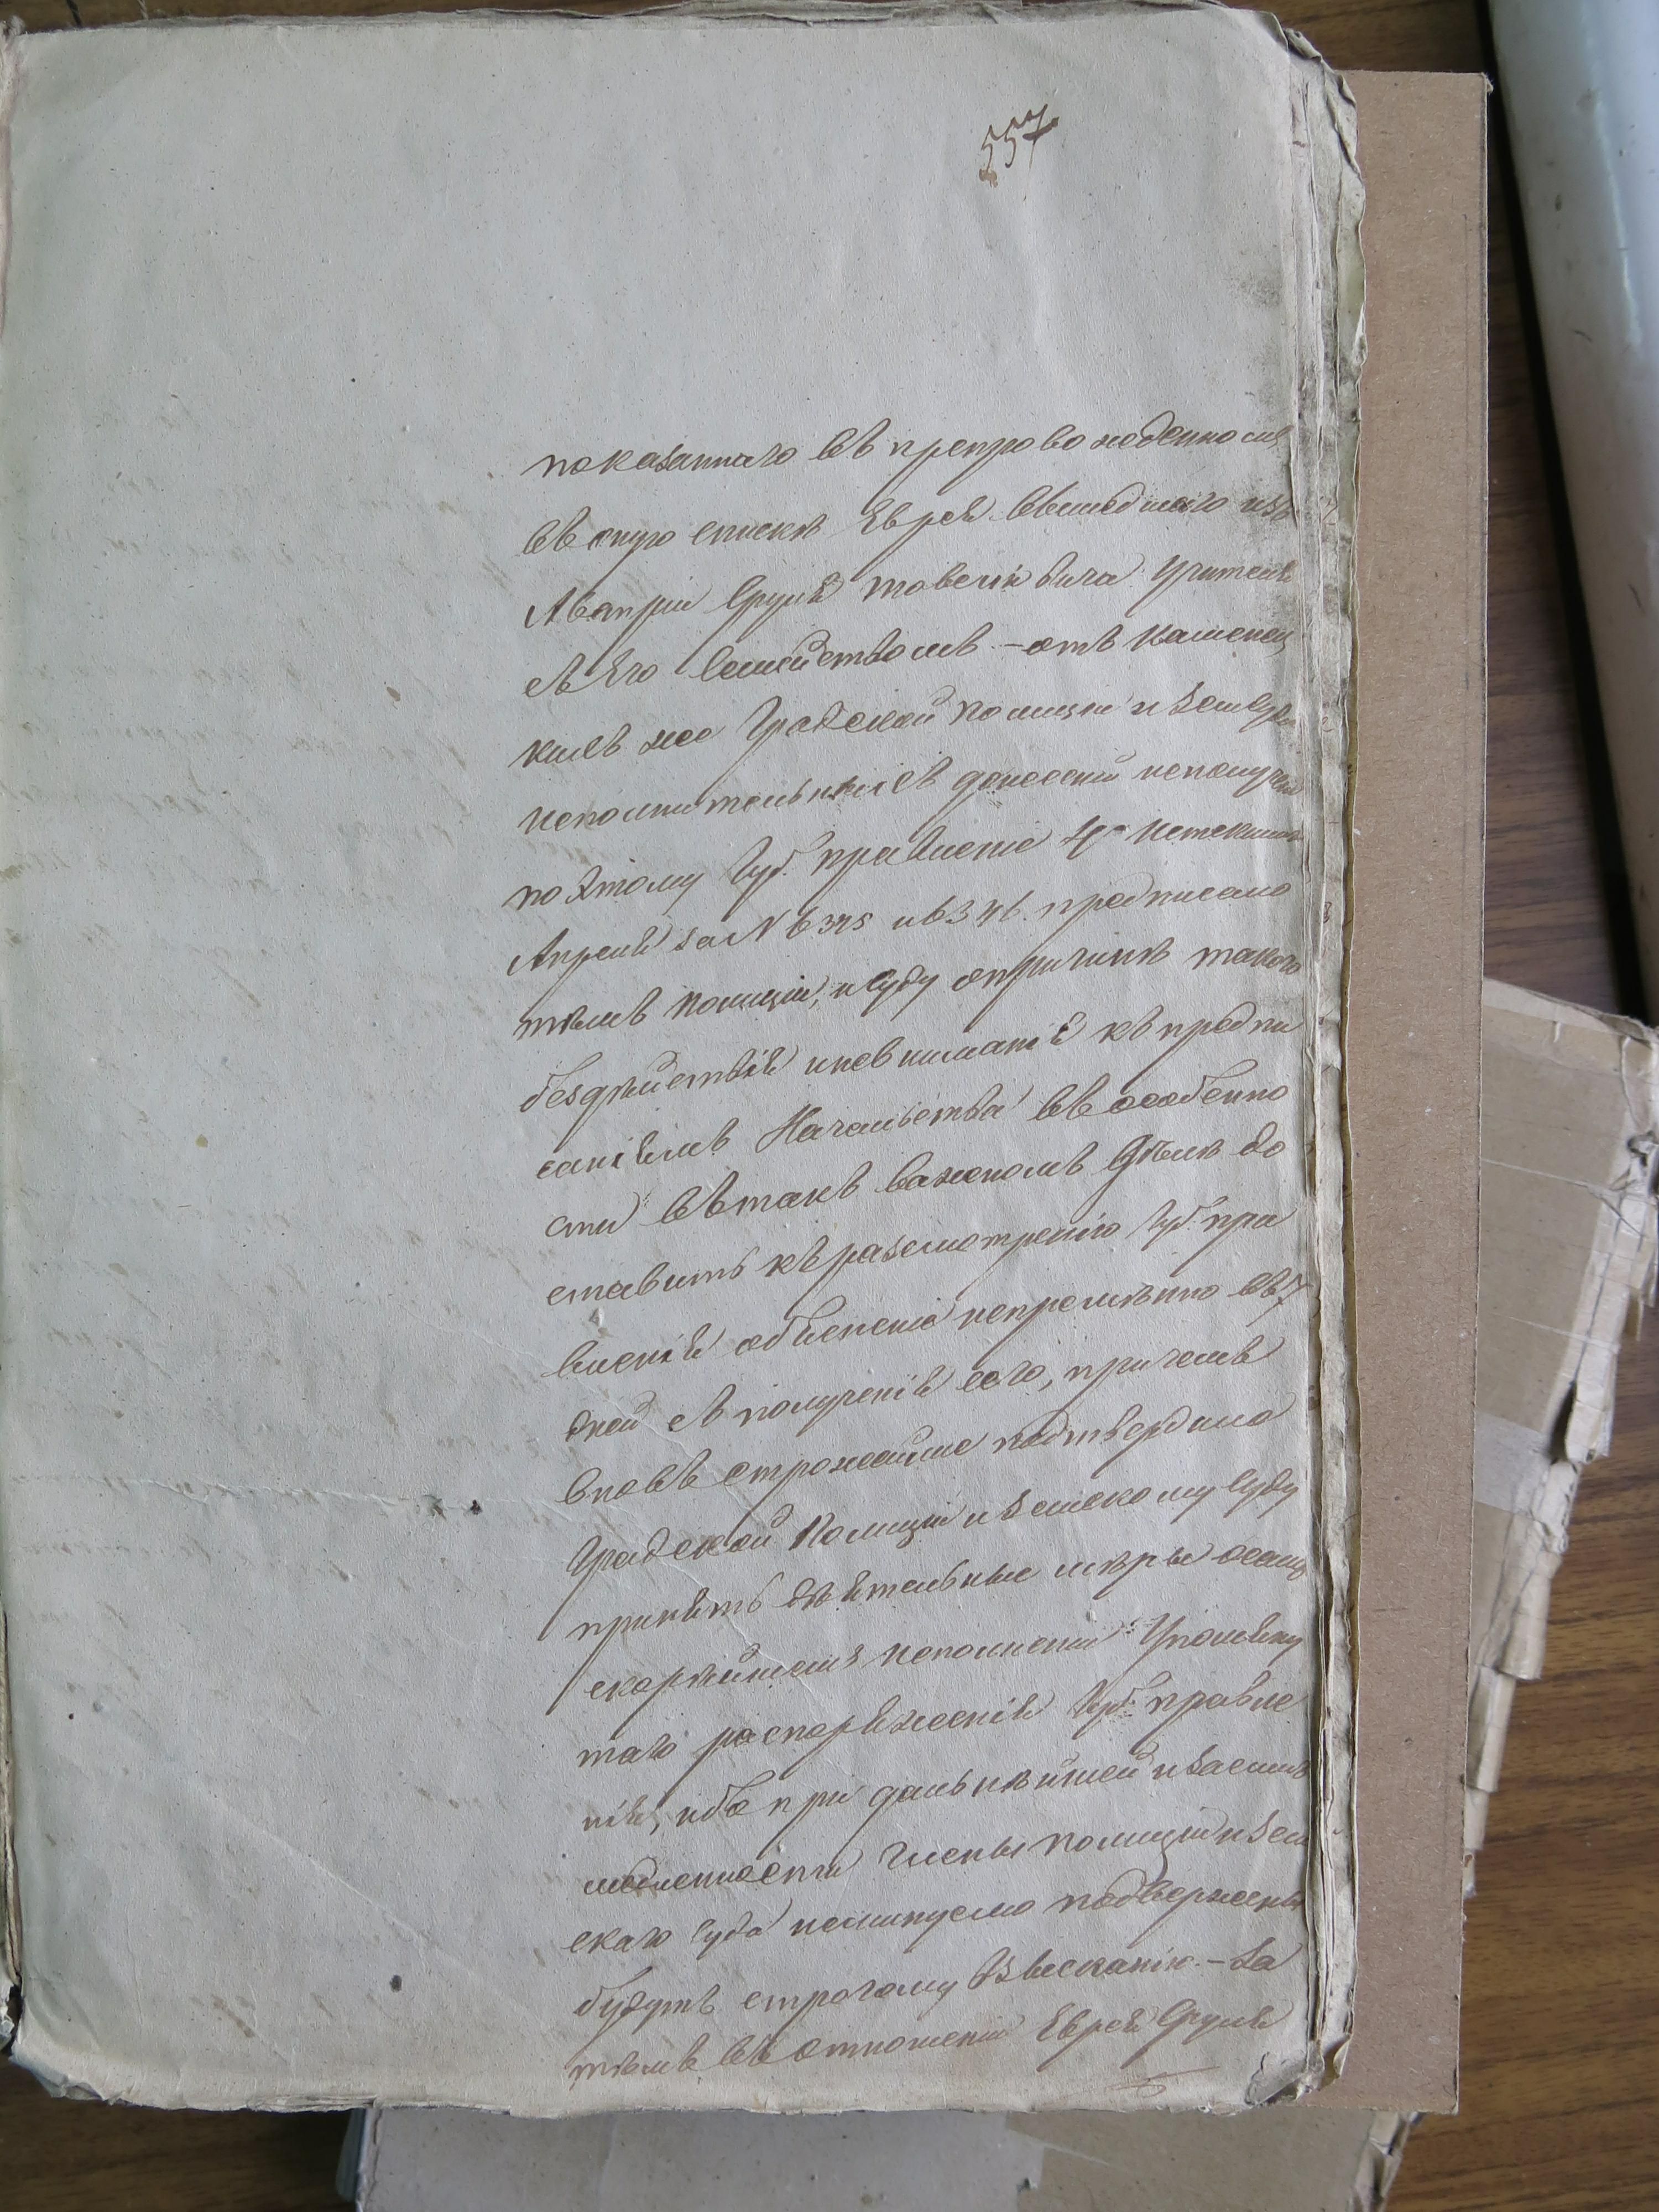 557
показаннаго въ препровожденномъ
въ оную спискѣ Еврея вышедшаго изъ
Австріи Сруля Товелевича Учителя
съ его Семействомъ – отъ Каменец
кихъ же Градской Полиціи и Зем Суда
исполнительныхъ донесеній неполучено
поэтому Губ. Правленіе Истекшаго
Апреля за N 6345 и 6346. предписано
тѣмъ Полиціи, и Суду опричинѣ такого
бездѣйствія иневниманія къ предпи
саніямъ Начальства въ особенно
сти въ такъ важномъ Дѣлѣ до
ставить къ разсмотренію Губ. пра
вленія объясненіе непремѣнно въ 7
дней съ полученія сего, причемъ
вновь строжайше подтвердило
Градской Полиціи и Земскому Суду
принять дѣятельные мѣры осамо
скорѣйшемъ исполненіи Упомяну
таго распоряженія Губ. правле
нія, ибо при дальнѣйшей и засимъ
медленности Члены Полиціи и Зем
скаго Суда неминуемо подвержены
будутъ строгому Взысканію. – За
тѣмъ въ отношеніи Еврея Сруля